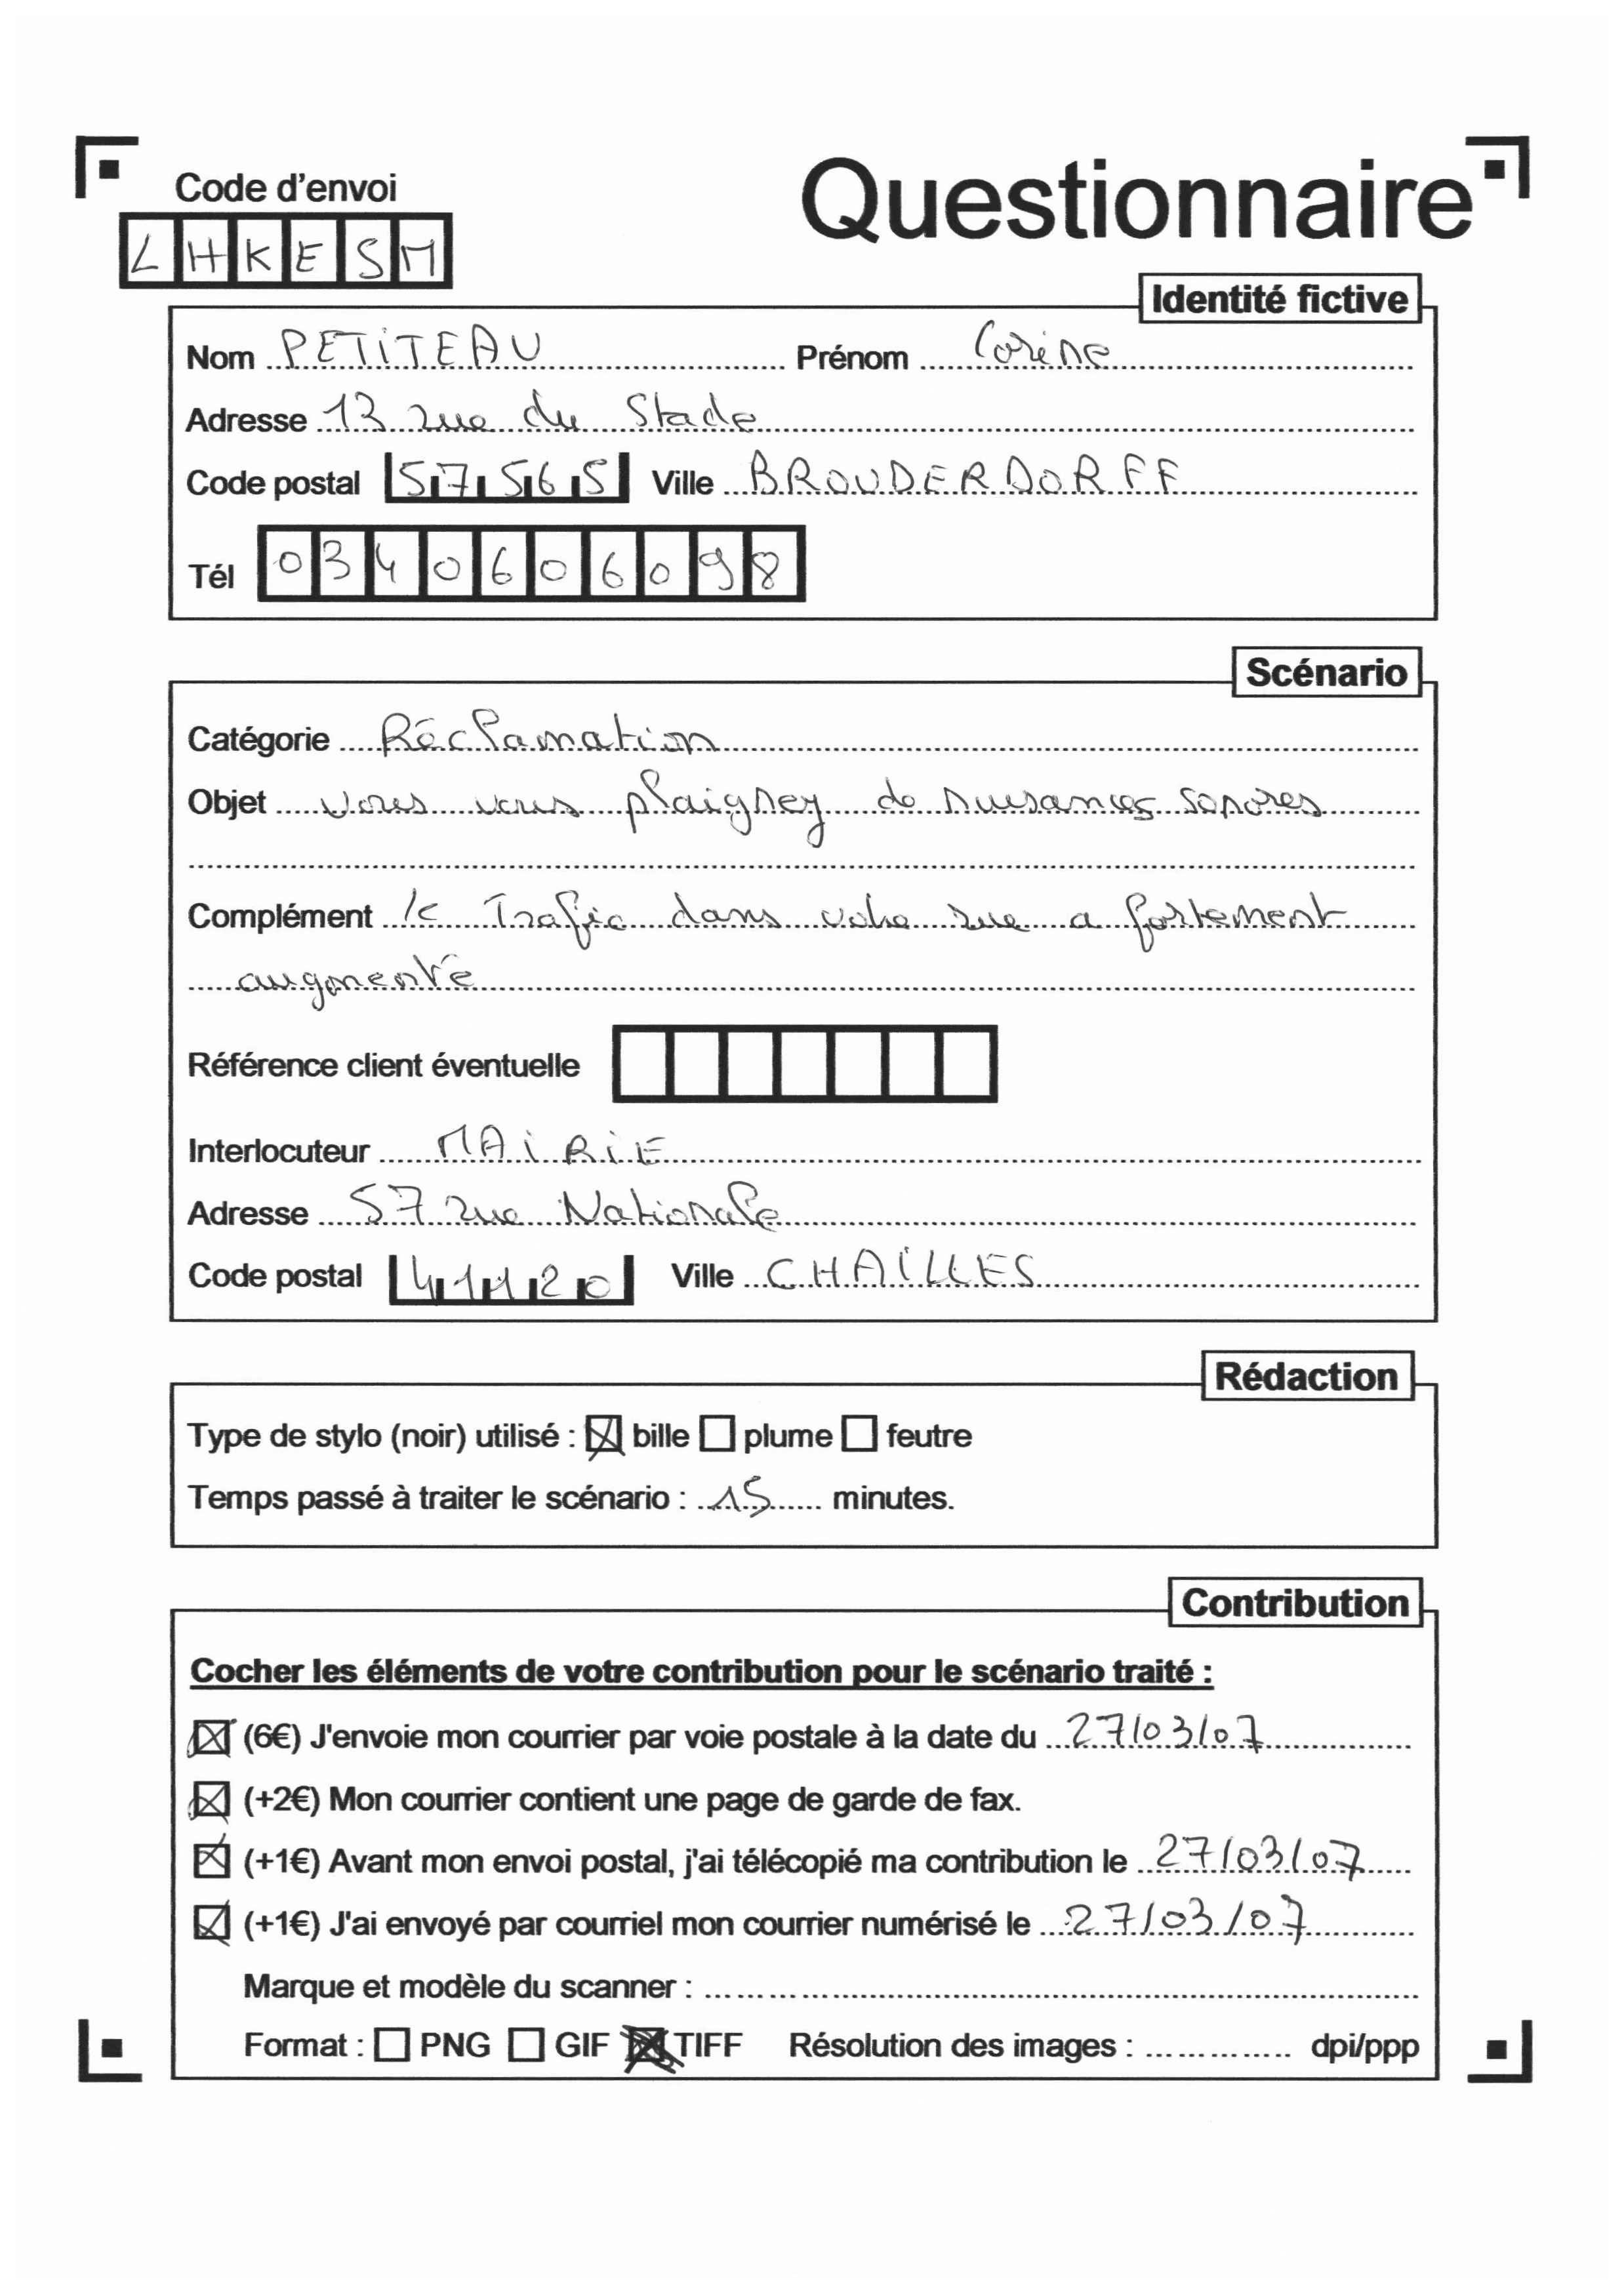 Code d'envoi
Questionnaire
LHKESM
Identité fictive
Nom PETITEAU Prénom Corine
Adresse 13 rue du Stade
Code postal 57565 Ville BROUDERDORFF
Tél 0340606098
Scénario
Catégorie Réclamation
Objet vous vous plaignez de nuisances sonores
Complément le Trafic dans votre rue a fortement
augmenté
Référence client éventuelle
Interlocuteur MAIRIE
Adresse 57 rue Nationale
Code postal 41120 Ville CHAILLES
Rédaction
Type de stylo (noir) utilisé : bille plume feutre
Temps passé à traiter le scénario : 15 minutes.
Contribution
Cocher les éléments de votre contribution pour le scénario traité :
(6€) J'envoie mon courrier par voie postale à la date du 27/03/07
(+2€) Mon courrier contient une page de garde de fax.
(+1€) Avant mon envoi postal, j'ai télécopié ma contribution le 27/03/07
(+1€) J'ai envoyé par courriel mon courrier numérisé le 27/03/07
Marque et modèle du scanner :
Format : PNG GIF TIFF Résolution des images : dpi/ppp